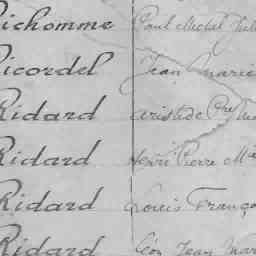 ichomme Paul Michel Jul
icordel Jean Marie
Ridard Aristide Pre Ma
Ridard Henri Pierre Ma
Ridard Louis Franço
Ridard Léon Jean Mar